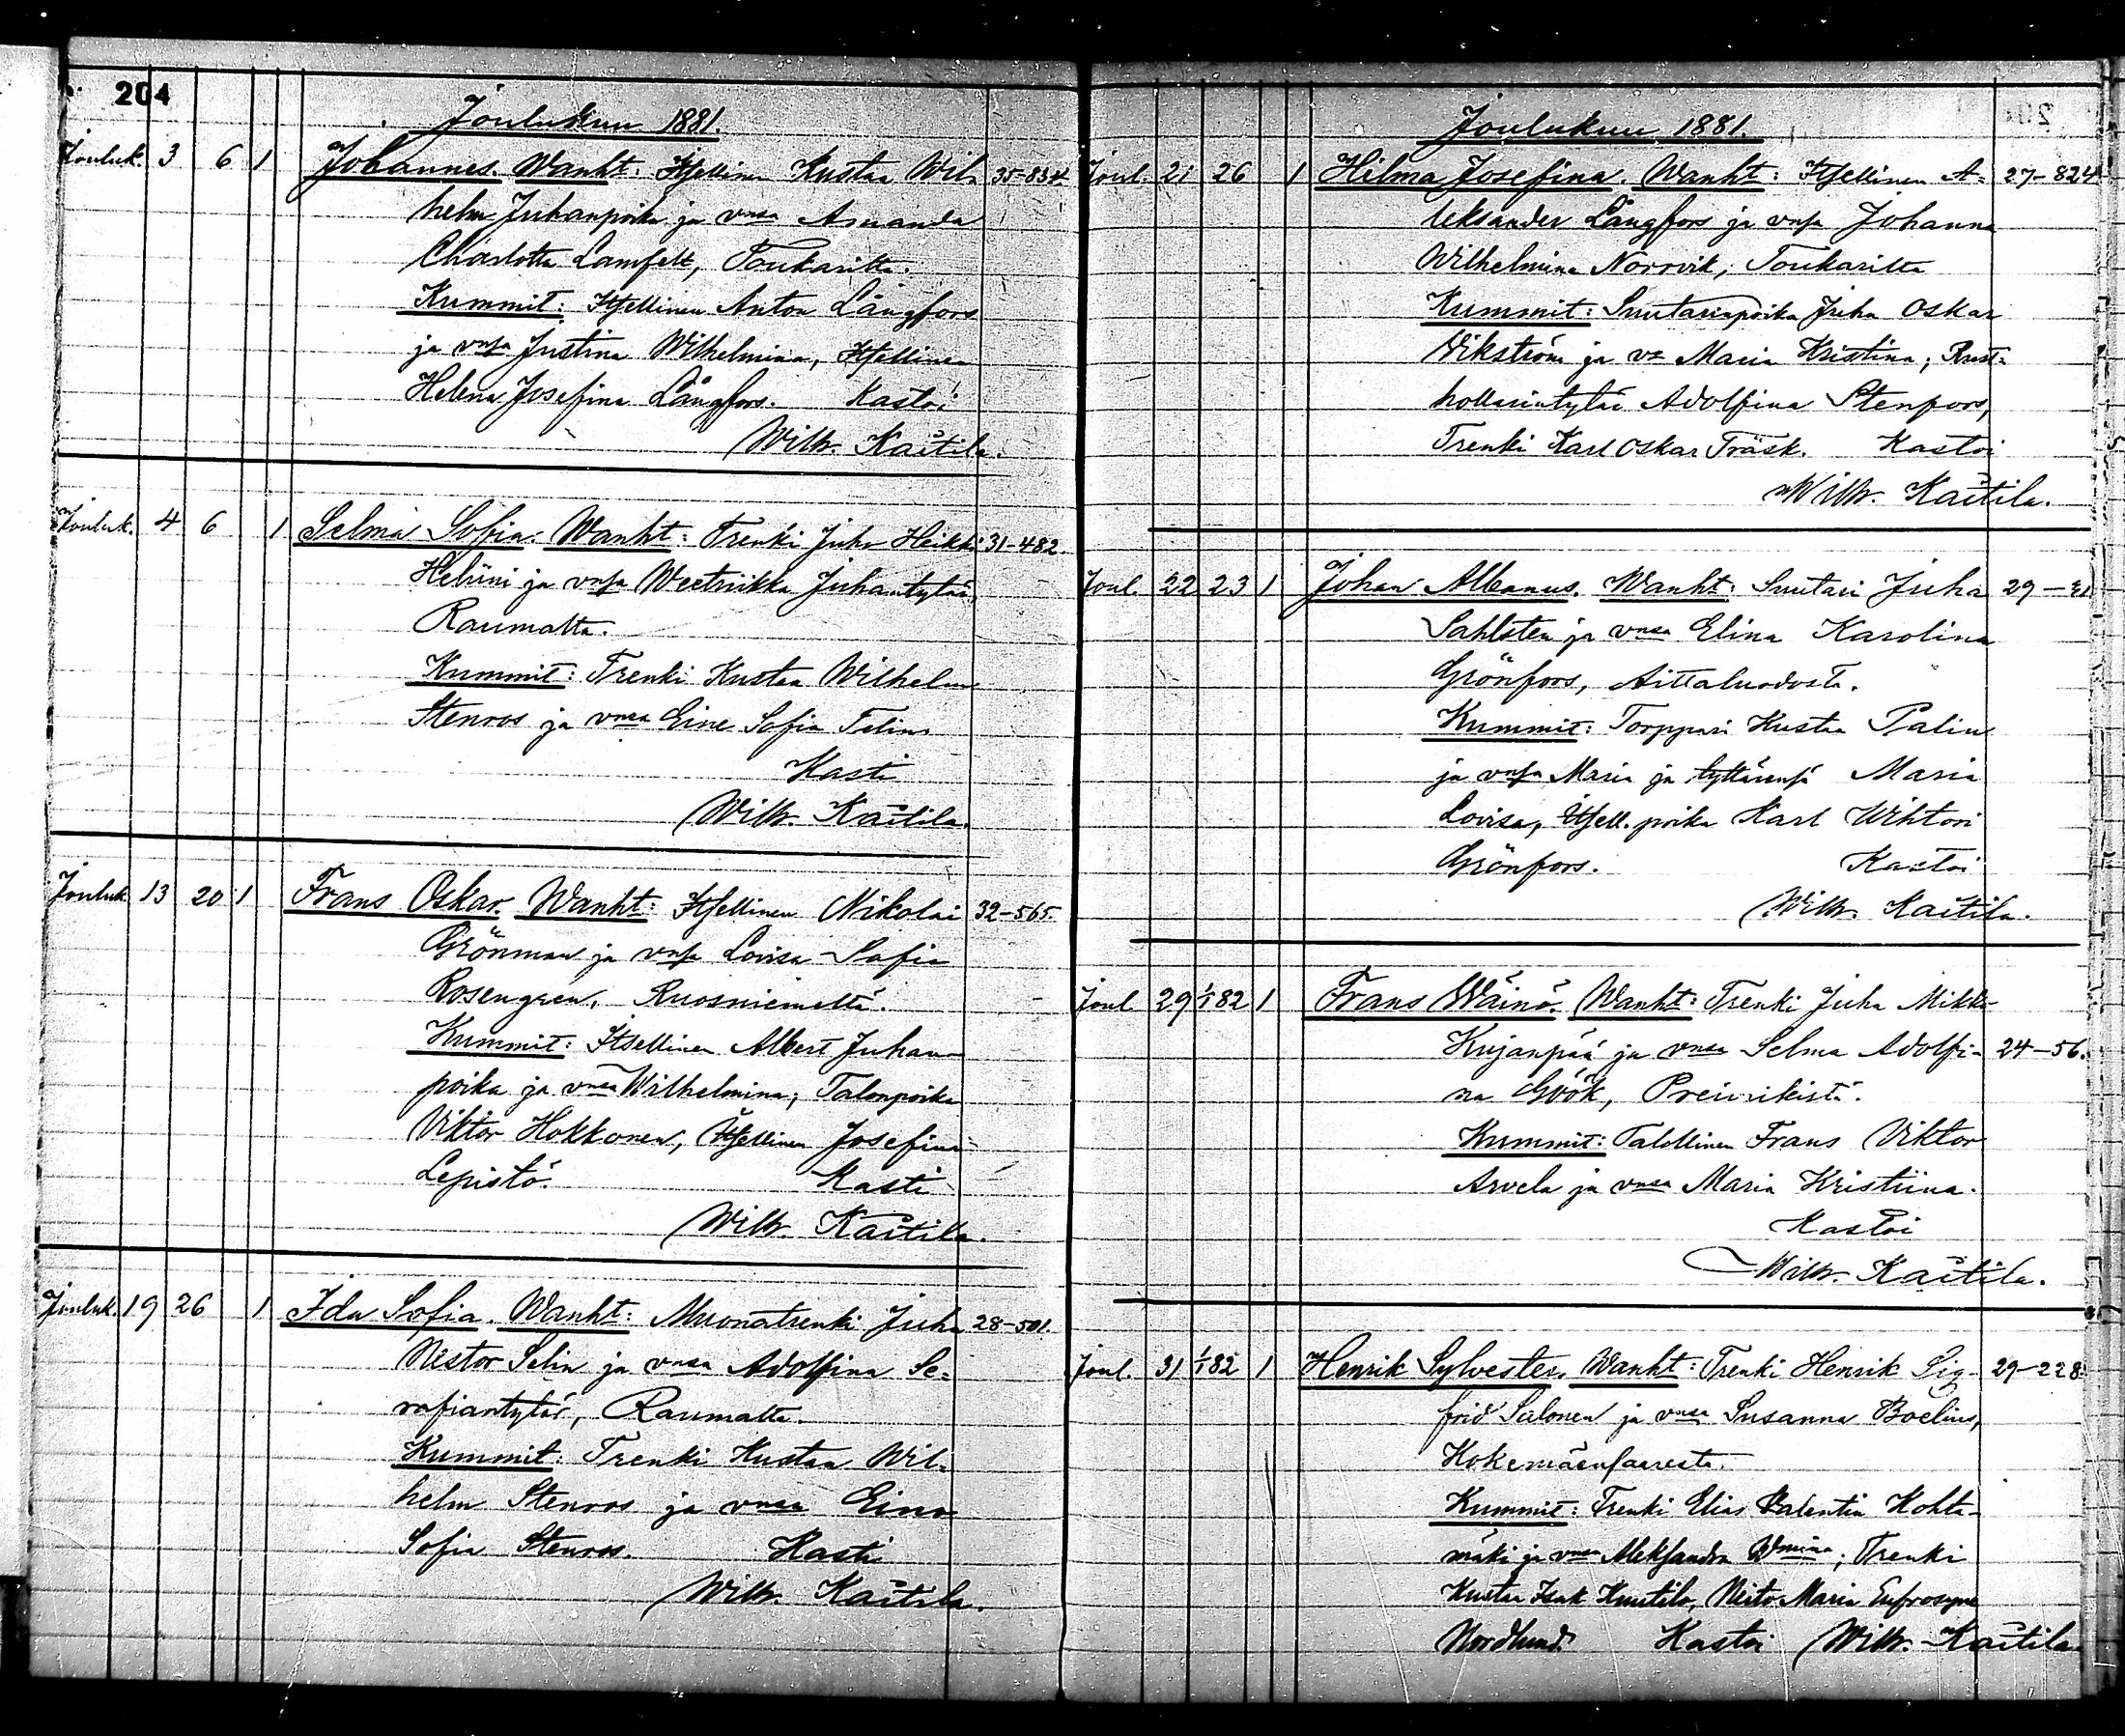 204
Joulukuu 1881.
Jouluk. 3 6 1 Johannes. Wanht: Itsellinen Kustaa Wil- 35-834.
helm Juhanpoika ja vnsa Amanda
Charlotta Lamfelt, Toukarilta.
Kummit: Itsellinen Anton Långfors
ja vnsa Justina Wilhelmina, Itsellinen
Helena Josefina Långfors. Kastoi
Wilh. Kaitila.
Jouluk. 4 6 1 Selma Sofia. Wanht: Trenki Juho Heikki 31-482.
ja vnsa Weetriikka Juhantytär,
Raumalta.
Kummit: Trenki Kustaa Wilhelm
Stenroos ja vnsa Eine Sofia
Kasti
Wilh. Kaitila.
Jouluk. 13 20 1 Frans Oskar. Wanht: Itsellinen Nikolai 32-565.
Grönman ja vnsa Lovisa Sofia
Rosengren, Ruosniemeltä.
Kummit: Itsellinen Albert Juhan-
poika ja vnsa Wilhelmina, Talonpoika
Viktor Hokkonen, Itsellinen Josefina
Lepistö. Kasti
Wilh. Kaitila.
Jouluk. 19 26 1 Ida Sofia. Wanht: Muonatrenki Juha 28-501.
Nestor Selin ja vnsa Adolfina Se-
rafiantytär, Raumalta.
Kummit: Trenki Kustaa Wil-
helm Stenroos ja vnsa Eino
Sofia Stenroos. Kasti
Wilh. Kaitila.
Joulukuu 1881.
Joul. 21 26 1 Hilma Josefina. Wanht: Itsellinen A- 27-824
leksander Långfors ja vnsa Johanna
Wilhelmina Norrvik, Toukarilta
Kummit: Suutarinpoika Juha Oskar
Vikström ja vo Maria Kristina, Rust-
hollarintytär Adolfina Stenfors,
Trenki Karl Oskar Träsk. Kastoi
Wilh. Kaitila.
Joul. 22 23 1 Johan Albanus. Wanht: Suutari Juha 29-
Sahlsten ja vnsa Elina Karolina
Grönfors, Aittaluodosta.
Kummit: Torppari Kustaa Palin
ja vnsa Maria ja tyttärensä Maria
Lovisa, Itsell. poika Karl Wihtori
Grönfors. Kastoi
Wilh. Kaitila.
Joul. 29 1/1 82 1 Frans Wäinö. Wanht: Trenki Juha Mikko
Kujanpää ja vnsa Selma Adolfi- 24-56.
na Göök, Preiviikistä.
Kummit: Talollinen Frans Viktor
Arvela ja vnsa Maria Kristiina.
Kastoi
Wilh. Kaitila.
Joul. 31 1/1 82 1 Henrik Sylvester. Wanht: Trenki Henrik Sig- 29-228.
frid Salonen ja vnsa Susanna Boelius,
Kokemäensaaresta.
Kummit: Trenki Elias Valentin Kohta-
mäki ja vnsa Aleksandra Wmina, Trenki
Kustaa Isak Knutila, Neito Maria Eufrosyne
Nordlund. Kastoi Wilh. Kaitila